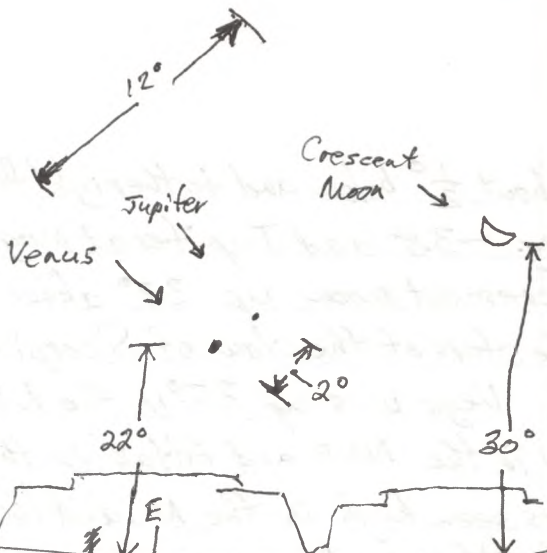 12°
Crescent
Moon
Jupiter
Venus
2°
22°
30°
E